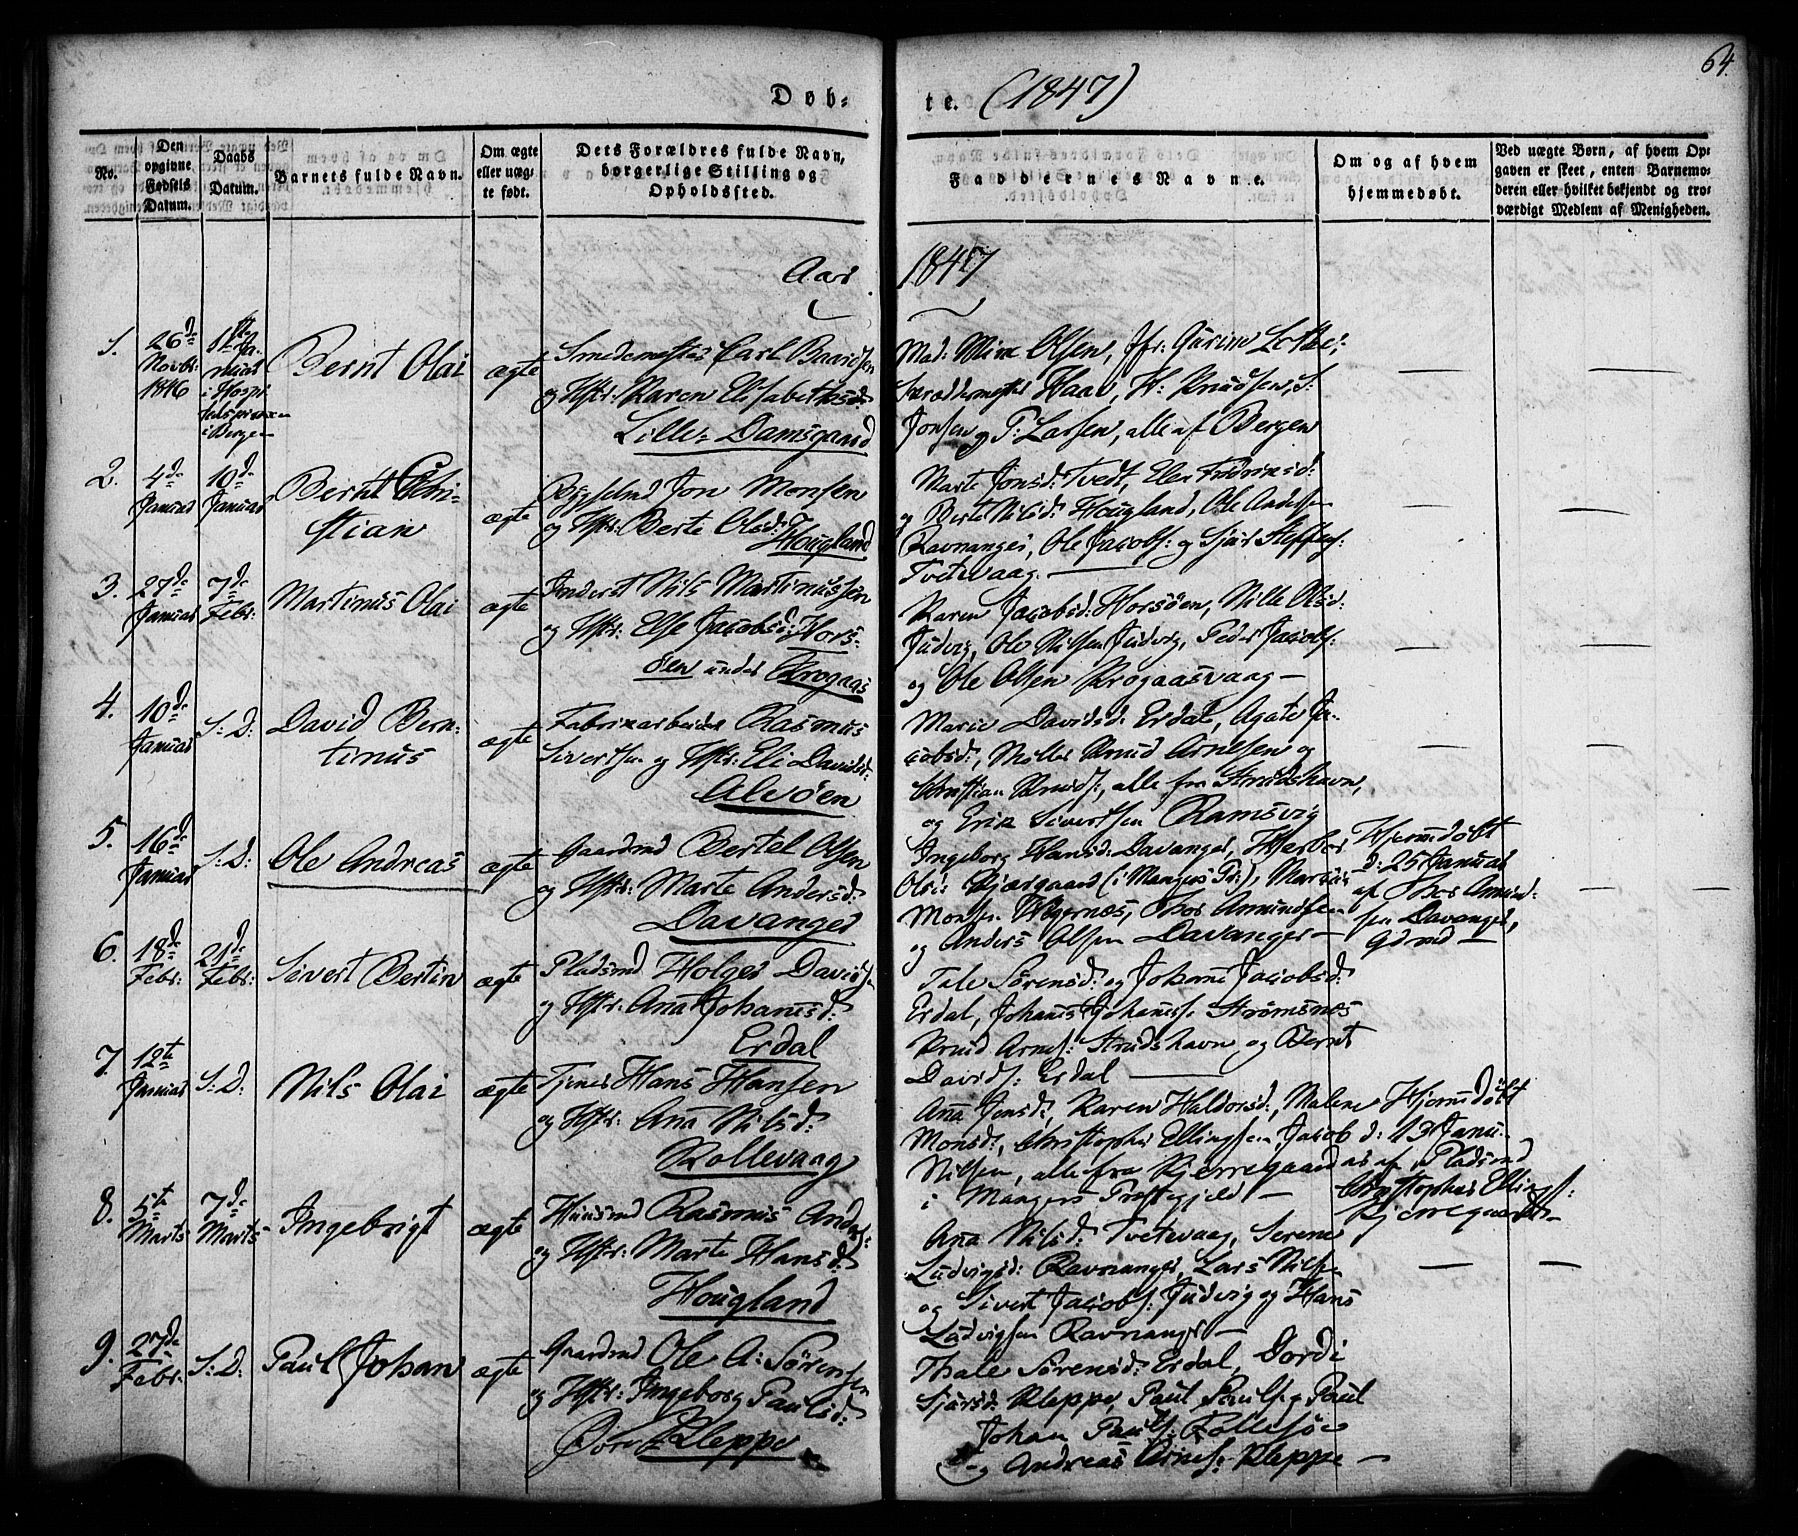 64.
Døb-
te. (1847)
No.
Den opgivne Fødsels Datum.
Daabs Datum.
Barnets fulde Navn.
Om ægte eller uægte født.
Dets Forældres fulde Navn, borgerlige Stilling og Opholdssted.
Faddernes Navne.
Om og af hvem hjemmedøbt.
Ved uægte Børn, af hvem Opgaven er skeet, enten Barnemoderen eller hvilket bekjendt og troværdigt Medlem af Menigheden.
Aar 1847
1.
26de
Novbr:
1846
i Bergen
Bernt Olai
ægte
Smedemester Carl Davidsen
og Hstr: Karen Elisabeth
Lille-Damsgaard
Mad: Olsen, Jfr:
Skræddermester Haae, H: Knudsen, S:
Jonsen og P: Larsen, alle af Bergen
2.
4de
Januar
10de
Januar
Bernt Chri-
stian
ægte
Bygselmd Jon Monsen
og Hstr: Berte Olsd:
Hougland
Marte Jonsd: Tvedt, Elen
og Berte Nilsd: Hougland, Ole Anders
Ravnanger, Ole Jacobs: og Sjur Steffens:
Tvetevaag.
3.
27de
Januar
7de
Febr:
Martinus Olai
ægte
Inderst Nils Martinussen
og Hstr: Else Jacobsd: Hors-
øen under Krogaas
Karen Jacobsd: Horsøen, Nille Olsd:
Judvig, Ole Nilsen Judvig, Peder Jacobs:
og Ole Olsen Krogaasvaag —
4.
10de
Januar
S: D:
David Bern-
tinus
ægte
Fabrikarbeider Rasmus
Sivertsen og Hstr: Eli Davidsd:
Alvøen
Marie Davidsd: Erdal, Agate Ja-
cobsd:, Møller Knud Arnesen og
Christian Knuds:, alle fra Strudshavn,
og Erik Sivertsen Ramsvig
5.
16de
Januar
S: D:
Ole Andreas
ægte
Gaardmd Bertel Olsen
og Hstr: Marte Andersd:
Davanger
Ingeborg Hansd: Davanger, Herbor
Olsd: Kjærgaard (i Mangers Pr:),
Monsen Hegernæs, Thos Amundsen
og Anders Olsen Davanger —
Hjemmedøbt
d: 25 Januar
af Thos Amund-
sen Davanger,
Gdmd —
6.
18de
Febr:
21de
Febr:
Sivert Bertin
ægte
Pladsmd Holger Davids
og Hstr: Ana Johannisd:
Erdal
Tale Sørensd: og Johane Jacobsd:
Erdal, Johannes Johanness: Strømsnes
Knud Arnes: Strudshavn og Bernt
Davids: Erdal —
7.
12te
Januar
S: D:
Nils Olai
ægte
Tjener Hans Hansen
og Hstr: Ana Nilsd:
Rollevaag
Ana Jensd:, Karen Haldorsd:, Malene
Monsd:, Christopher Ellingsen, Jacob
Nilsen, alle fra Kjerregaard
i Mangers Præstegjeld —
Hjemmedøbt
d: 13 Janu-
ar af Pladsmd
Christopher Ellings:
Kjerregaard —
8.
5te
Marts
7de
Marts
Ingebrigt
ægte
Huusmd Rasmus Anders:
og Hstr: Marte Hansd:
Hougland
Ana Nilsd: Tvetevaag, Serene
Ludvigsd: Ravnanger, Lars Nilsen
og Sivert Jacobs: Judvig og Hans
Ludvigsen Ravnanger —
9.
27de
Febr:
S: D:
Paul Johan
ægte
Gaardmd Ole A: Sørensen
og Hstr: Ingeborg Paulsd:
Øvre Kleppe
Thale Sørensd: Erdal, Dordi
Sjursd: Kleppe, Paul Pauls: og Poul
Johan Pauls: Rollesøe
og Andreas Arnes: Kleppe —